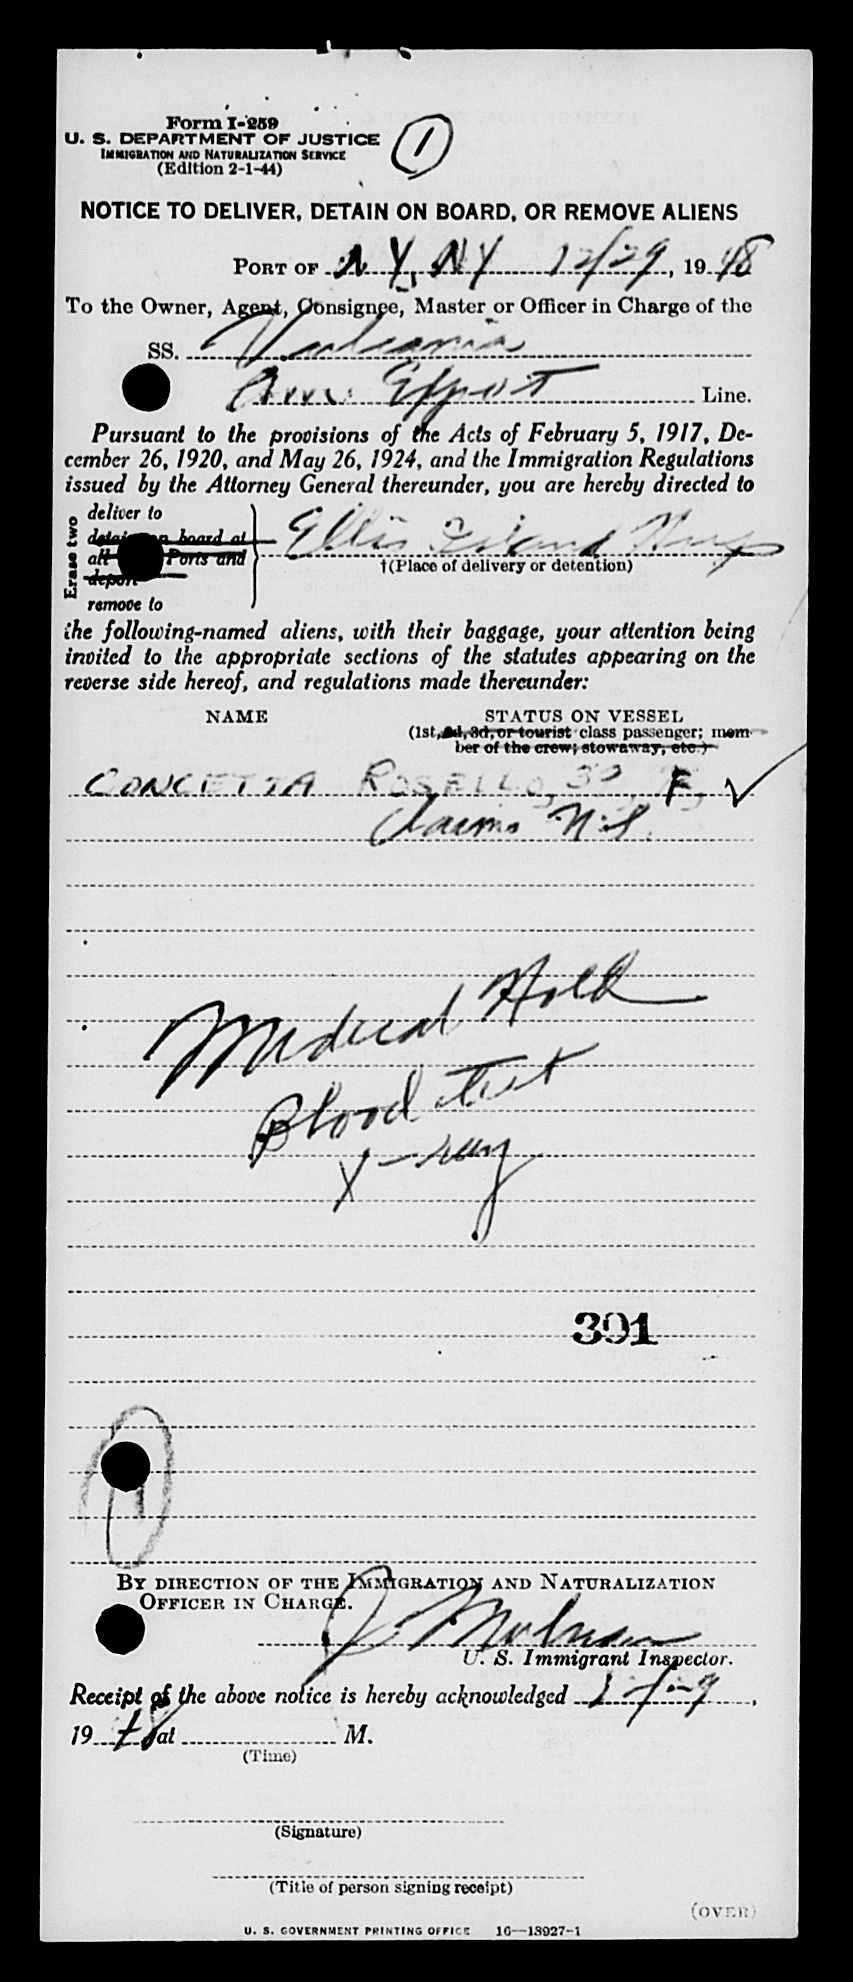 Form I-259
U. S. DEPARTMENT OF JUSTICE
IMMIGRATION AND NATURALIZATION SERVICE
(Edition 2-1-44)
1
NOTICE TO DELIVER, DETAIN ON BOARD, OR REMOVE ALIENS
PORT OF N Y, NY 12/29, 1948
To the Owner, Agent, Consignee, Master or Officer in Charge of the
SS. Vulcania
Am. Export Line.
Pursuant to the provisions of the Acts of February 5, 1917, De-
cember 26, 1920, and May 26, 1924, and the Immigration Regulations
issued by the Attorney General thereunder, you are hereby directed to
Erase two
deliver to
detain on board at
all Ports and
deport
remove to
Ellis Island
†(Place of delivery or detention)
the following-named aliens, with their baggage, your attention being
invited to the appropriate sections of the statutes appearing on the
reverse side hereof, and regulations made thereunder:
NAME STATUS ON VESSEL
(1st, 2d, 3d, or tourist class passenger; mem-
ber of the crew; stowaway, etc.)
CONCETTA ROSELLO, 30, F,
Claims
Medical Hold
Blood test
X-ray
391
BY DIRECTION OF THE IMMIGRATION AND NATURALIZATION
OFFICER IN CHARGE.
U. S. Immigrant Inspector.
Receipt of the above notice is hereby acknowledged 12/29,
1948 at M.
(Time)
(Signature)
(Title of person signing receipt)
(OVER)
U. S. GOVERNMENT PRINTING OFFICE 16—13927-1